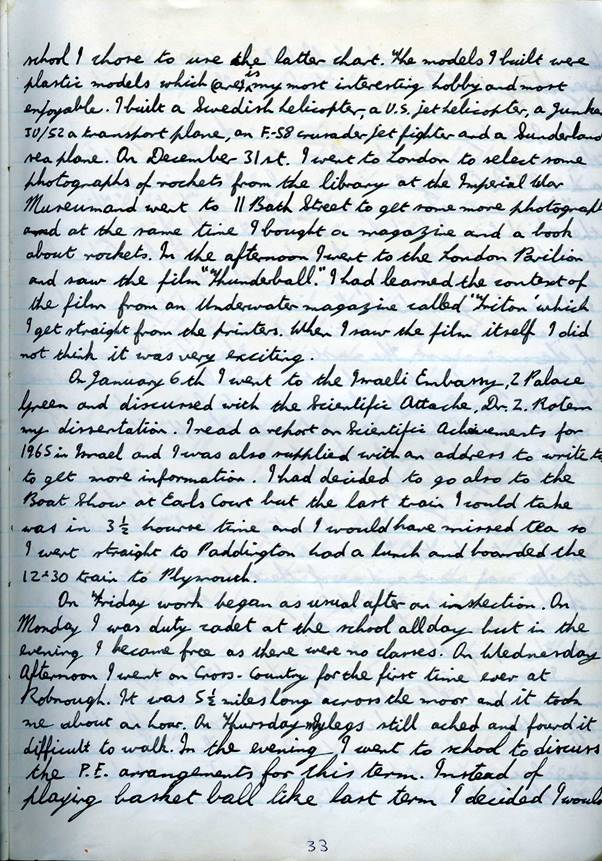 school I chose to use the latter chart. The models I built were
plastic models which (are) is my most interesting hobby and most
enjoyable. I built a Swedish helicopter, a U.S. jet helicopter, a Junker
JU/52 a transport plane, an F-58 crusader jet fighter and a Sunderland
sea plane. On December 31st. I went to London to select some
photographs of rockets from the library at the Imperial War
Museum and went to 11 Bath Street to get some more photograph
and at the same time I bought a magazine and a book
about rockets. In the afternoon I went to the London Pavilion
and saw the film "Thunderball." I had learned the context of
the film from an Underwater magazine called "Triton' which
I get straight from the printers. When I saw the film itself I did
not think it was very exciting.
On January 6th I went to the Israeli Embassy, 2 Palace
Green and discussed with the Scientific Attache, Dr. Z. Rotem
my dissertation. I read a report on Scientific Achievements for
1965 in Israel and I was also supplied with an address to write to
to get more information. I had decided to go also to the
Boat Show at Earls Court but the last train I would take
was in 3 1/2 hourse time and I would have missed tea so
I went straight to Paddington had a lunch and boarded the
12-30 train to Plymouth.
On Friday work began as usual after an inspection. On
Monday I was duty cadet at the school all day but in the
evening I became free as there were no classes. On Wednesday
Afternoon I went on Cross-Country for the first time ever at
Robnough. It was 5 1/2 miles long across the moor and it took
me about an hour. On Thursday my legs still ached and found it
difficult to walk. In the evening I went to school to discuss
the P.E. arrangements for this term. Instead of
playing basket ball like last term I decided I would
33